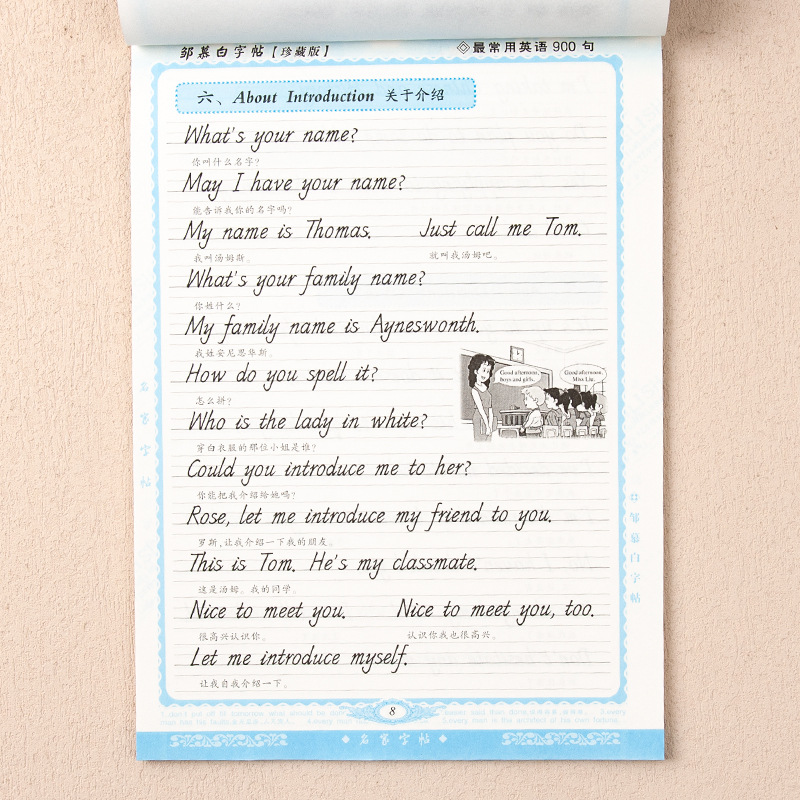 邹慕白字帖【珍藏版】 ◇最常用英语900句
六、About Introduction 关于介绍
What's your name?
你叫什么名字?
May I have your name?
能告诉我你的名字吗?
My name is Thomas. Just call me Tom.
我叫汤姆斯。 就叫我汤姆吧。
What's your family name?
你姓什么?
My family name is Aynesworth.
我姓安尼思华斯。
How do you spell it?
怎么拼?
Good afternoon, boys and girls.
Good afternoon, Miss Liu.
Who is the lady in white?
穿白衣服的那位小姐是谁?
Could you introduce me to her?
你能把我介绍给她吗?
Rose, let me introduce my friend to you.
罗斯,让我介绍一下我的朋友。
This is Tom. He's my classmate.
这是汤姆。我的同学。
Nice to meet you. Nice to meet you, too.
很高兴认识你。 认识你我也很高兴。
Let me introduce myself.
让我自我介绍一下。
名家字帖
邹慕白字帖
8
名家字帖